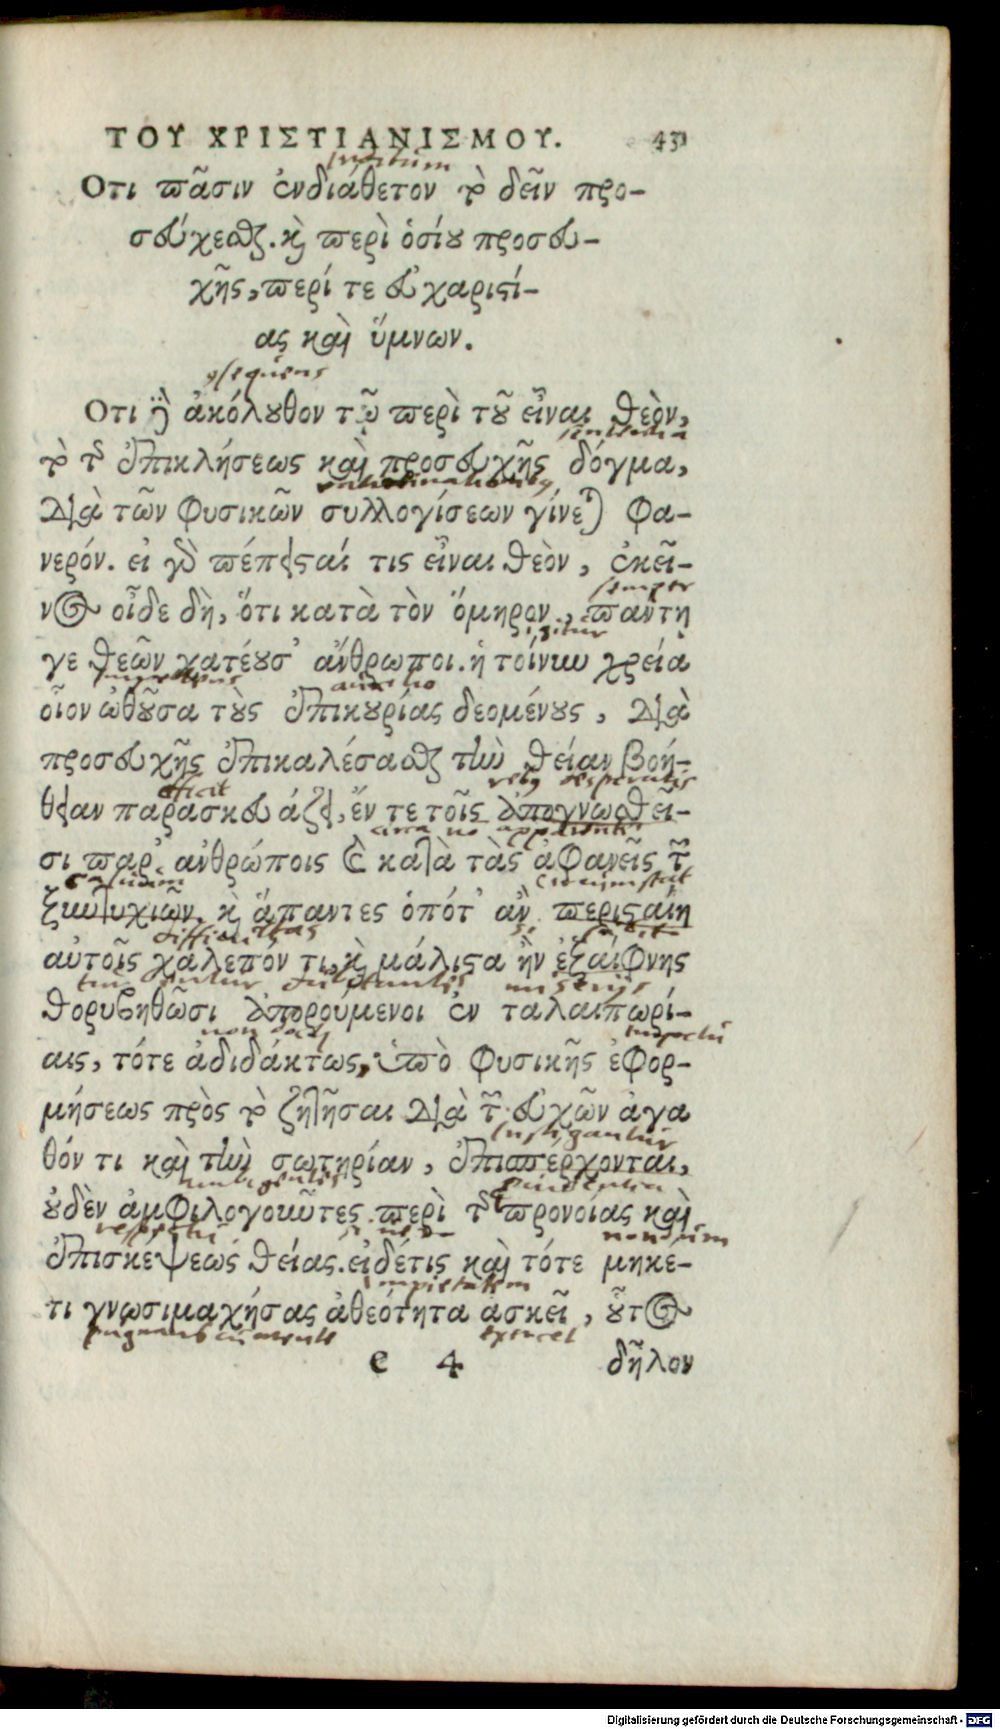 ΤΟΥ ΧΡΙΣΤΙΑΝΙΣΜΟΥ. 43
insitum
Οτι πᾶσιν ἐνδιάθετον τὸ δεῖν προ-
σεύχεσθαι. καὶ περὶ ὁσίου προσευ-
χῆς, περί τε εὐχαριστί-
ας καὶ ὕμνων.
consequens
Οτι δὲ ἀκόλουθον τῷ περὶ τοῦ εἶναι θεὸν,
sententia
τὸ τῆς ἐπικλήσεως καὶ προσευχῆς δόγμα,
διὰ τῶν φυσικῶν συλλογίσεων γίνεται φα-
νερόν. εἰ γὰρ πέπεισταί τις εἶναι θεὸν, ἐκεῖ-
semper
νος οἶδε δὴ, ὅτι κατὰ τὸν ὅμηρον, πάντη
igitur
γε θεῶν χατέουσ' ἄνθρωποι. ἡ τοίνυν χρεία
auxilio
οἷον ὠθοῦσα τοὺς ἐπικουρίας δεομένους, διὰ
προσευχῆς ἐπικαλέσασθαι τὴν θείαν βοή-
efficit rebus desperatis
θειαν παρασκευάζει, ἔν τε τοῖς ἀπογνωσθεῖ-
σι παρ' ἀνθρώποις καὶ κατὰ τὰς ἀφανεῖς τῶν
casuum circumstat
ξυντυχιῶν. καὶ ἅπαντες ὁπότ' ἂν περισταίη
difficultas si subito
αὐτοῖς χαλεπόν τι, καὶ μάλιστα ἢν ἐξαίφνης
miserijs
θορυβηθῶσι ἀπορούμενοι ἐν ταλαιπωρί-
non docti impetu
αις, τότε ἀδιδάκτως, ὑπὸ φυσικῆς ἐφορ-
μήσεως πρὸς τὸ ζητῆσαι διὰ τῶν εὐχῶν ἀγα
instigantur
θόν τι καὶ τὴν σωτηρίαν, ἐπισπέρχονται,
ambigentes providentia
οὐδὲν ἀμφιλογοῦντες περὶ τῆς προνοίας καὶ
respectu nondum
ἐπισκέψεως θείας. εἰ δέ τις καὶ τότε μηκέ-
impietatem
τι γνωσιμαχήσας ἀθεότητα ἀσκεῖ, οὗτος
exercet
e 4 δῆλον
Digitalisierung gefördert durch die Deutsche Forschungsgemeinschaft - DFG